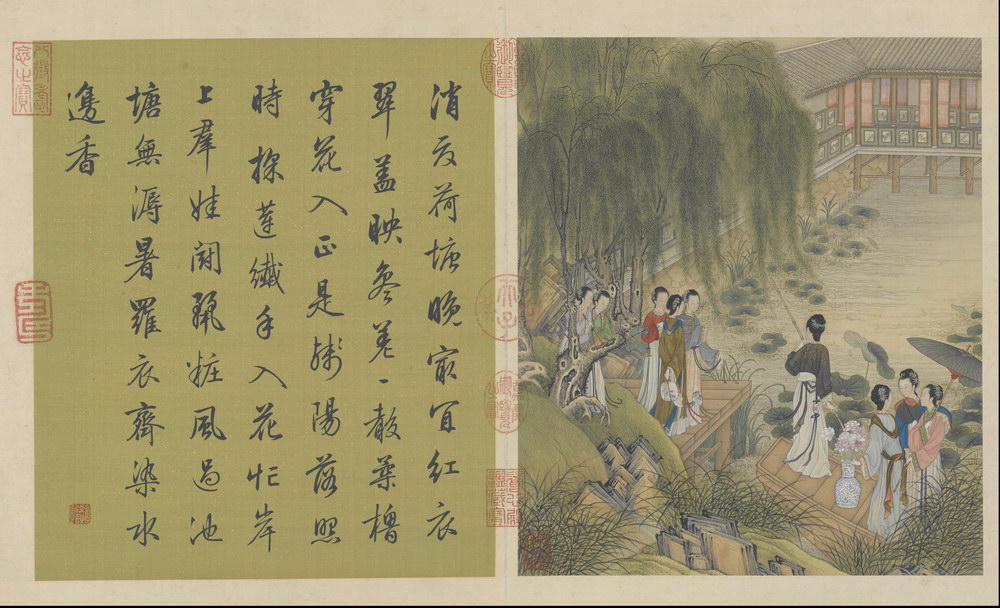 消夏荷塘晚冣宜紅衣
翠蓋映參差一聲柔櫓
穿花入正是殘陽落照
時採蓮纖手入花忙岸
上羣娃鬬靚粧風過池
塘無溽暑羅衣齊染水
邊香